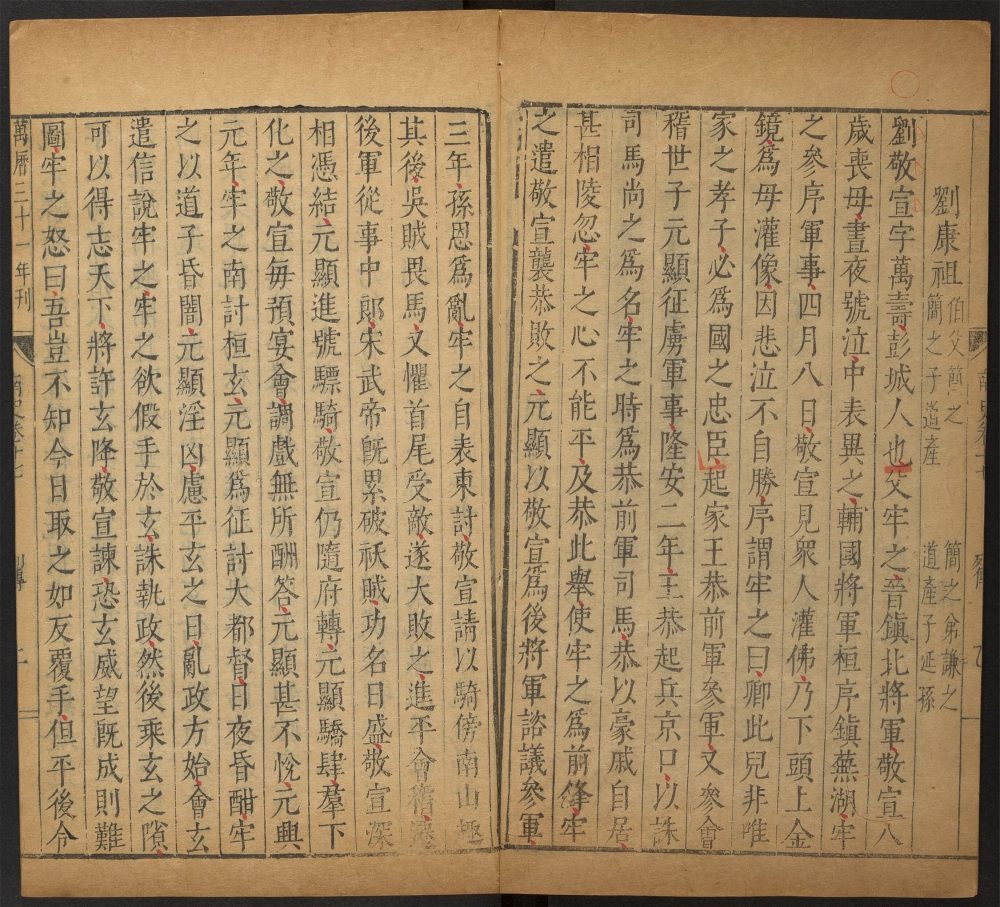 劉康祖 伯父簡之 簡之弟謙之
簡之子道產 道產子延孫
劉敬宣字萬壽彭城人也父牢之晉鎮北將軍敬宣八
歲喪母晝夜號泣中表異之輔國將軍桓序鎮蕪湖牢
之參序軍事四月八日敬宣見衆人灌佛乃下頭上金
鏡爲母灌像因悲泣不自勝序謂牢之曰卿此兒非唯
家之孝子必爲國之忠臣起家王恭前軍參軍又參會
稽世子元顯征虜軍事隆安二年王恭起兵京口以誅
司馬尚之爲名牢之時爲恭前軍司馬恭以豪戚自居
甚相陵忽牢之心不能平及恭此舉使牢之爲前鋒牢
之遣敬宣襲恭敗之元顯以敬宣爲後將軍諮議參軍
三年孫恩爲亂牢之自表東討敬宣請以騎傍南山趣
其後吳賊畏馬又懼首尾受敵遂大敗之進平會稽遷
後軍從事中郎宋武帝旣累破祅賊功名日盛敬宣深
相憑結元顯進號驃騎敬宣仍隨府轉元顯驕肆羣下
化之敬宣每預宴會調戲無所酬答元顯甚不悅元興
元年牢之南討桓玄元顯爲征討大都督日夜昏酣牢
之以道子昏闇元顯淫凶慮平玄之日亂政方始會玄
遣信說牢之牢之欲假手於玄誅執政然後乘玄之隙
可以得志天下將許玄降敬宣諫恐玄威望旣成則難
圖牢之怒曰吾豈不知今日取之如反覆手但平後令
萬曆三十一年刊
南史卷十七
列傳
二